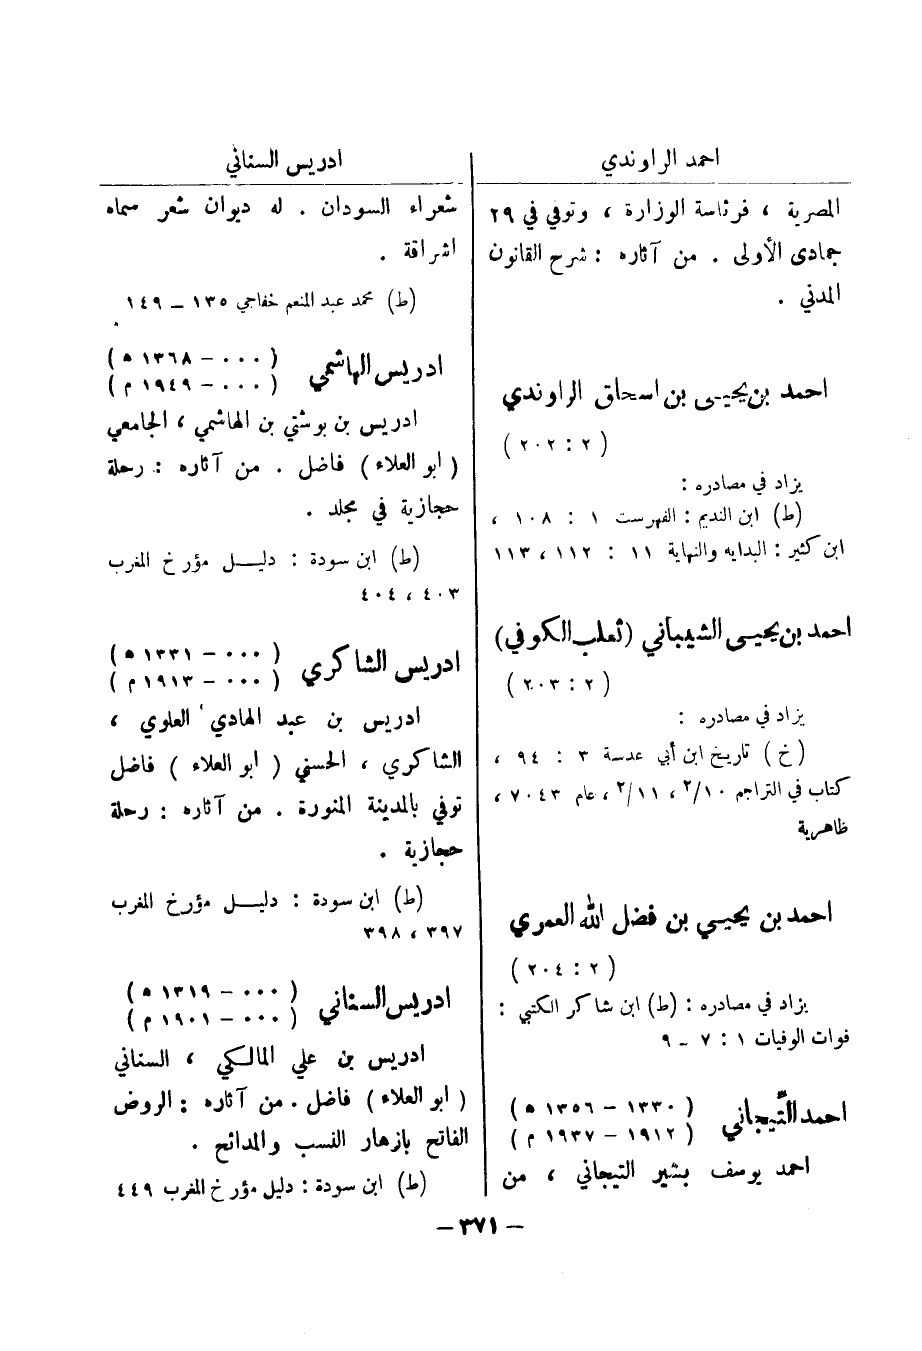 احمد الراوندي
المصرية ، فرئاسة الوزارة ، وتوفي في ٢٩
جمادى الأولى . من آثاره : شرح القانون
المدني .
احمد بن يحيى بن اسحاق الراوندي
( ٢ : ٢٠٢ )
يزاد في مصادره :
(ط) ابن النديم : الفهرست ١ : ١٠٨ ،
ابن كثير : البدايه والنهاية ١١ : ١١٢ ، ١١٣
احمد بن يحيى الشيباني (ثعلب الكوفي)
( ٢ : ٢٠٣ )
يزاد في مصادره :
( خ ) تاريخ ابن أبي عدسة ٣ : ٩٤ ،
كتاب في التراجم ٢/١٠ ، ٢/١١ ، عام ٧٠٤٣ ،
ظاهرية
احمد بن يحيى بن فضل الله العمري
( ٢ : ٢٠٤ )
يزاد في مصادره : (ط) ابن شاكر الكتبي :
فوات الوفيات ١ : ٧ – ٩
احمد التَّيجاني ( ١٣٣٠ – ١٣٥٦ ه )
( ١٩١٢ – ١٩٣٧ م )
احمد يوسف بشير التيجاني ، من
ادريس السناني
شعراء السودان . له ديوان شعر سماه
اشراقة .
(ط) محمد عبد المنعم خفاجي ١٣٥ – ١٤٩
ادريس الهاشمي ( ٠٠٠ – ١٣٦٨ ه )
( ٠٠٠ – ١٩٤٩ م )
ادريس بن بوشتي بن الهاشمي ، الجامعي
( ابو العلاء ) فاضل . من آثاره : رحلة
حجازية في مجلد .
(ط) ابن سودة : دليل مؤرخ المغرب
٤٠٣ ، ٤٠٤
ادريس الشاكري ( ٠٠٠ – ١٣٣١ ه )
( ٠٠٠ – ١٩١٣ م )
ادريس بن عبد الهادي العلوي ،
الشاكري ، الحسني ( ابو العلاء ) فاضل
توفي بالمدينة المنورة . من آثاره : رحلة
حجازية .
(ط) ابن سودة : دليل مؤرخ المغرب
٣٩٧ ، ٣٩٨
ادريس السناني ( ٠٠٠ – ١٣١٩ ه )
( ٠٠٠ – ١٩٠١ م )
ادريس بن علي المالكي ، السناني
( ابو العلاء ) فاضل . من آثاره : الروض
الفاتح بازهار النسب والمدائح .
(ط) ابن سودة : دليل مؤرخ المغرب ٤٤٩
– ٣٧١ –